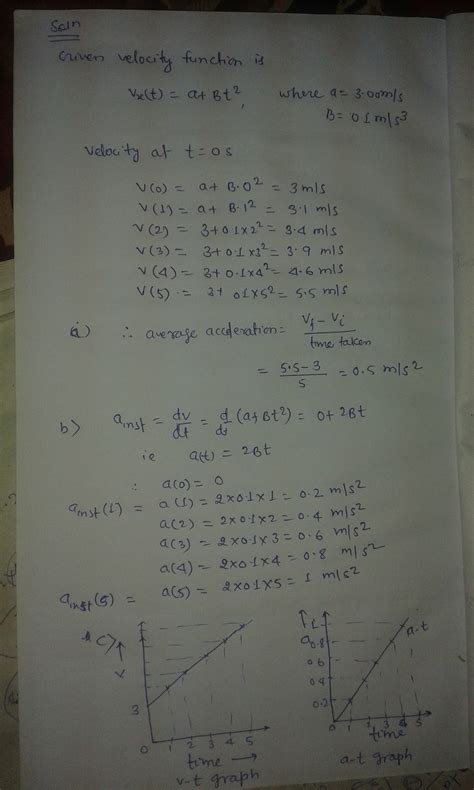 Soln
Given velocity function is
Vx(t) = a + Bt², where a = 3.00 m/s
B = 0.1 m/s³
Velocity at t = 0 s
V(0) = a + B·0² = 3 m/s
V(1) = a + B·1² = 3.1 m/s
V(2) = 3 + 0.1 x 2² = 3.4 m/s
V(3) = 3 + 0.1 x 3² = 3.9 m/s
V(4) = 3 + 0.1 x 4² = 4.6 m/s
V(5) = 3 + 0.1 x 5² = 5.5 m/s
a) ∴ average acceleration = (Vf - Vi) / time taken
= (5.5 - 3) / 5 = 0.5 m/s²
b) a inst = dv/dt = d/dt (a + Bt²) = 0 + 2Bt
ie a(t) = 2Bt
∴ a(0) = 0
a inst (1) = a(1) = 2 x 0.1 x 1 = 0.2 m/s²
a(2) = 2 x 0.1 x 2 = 0.4 m/s²
a(3) = 2 x 0.1 x 3 = 0.6 m/s²
a(4) = 2 x 0.1 x 4 = 0.8 m/s²
a inst (5) = a(5) = 2 x 0.1 x 5 = 1 m/s²
c) ↑ V
3
0 1 2 3 4 5
time →
v-t graph
↑ a
1
0.8
0.6
0.4
0.2
a-t
0 1 2 3 4 5
time
a-t graph